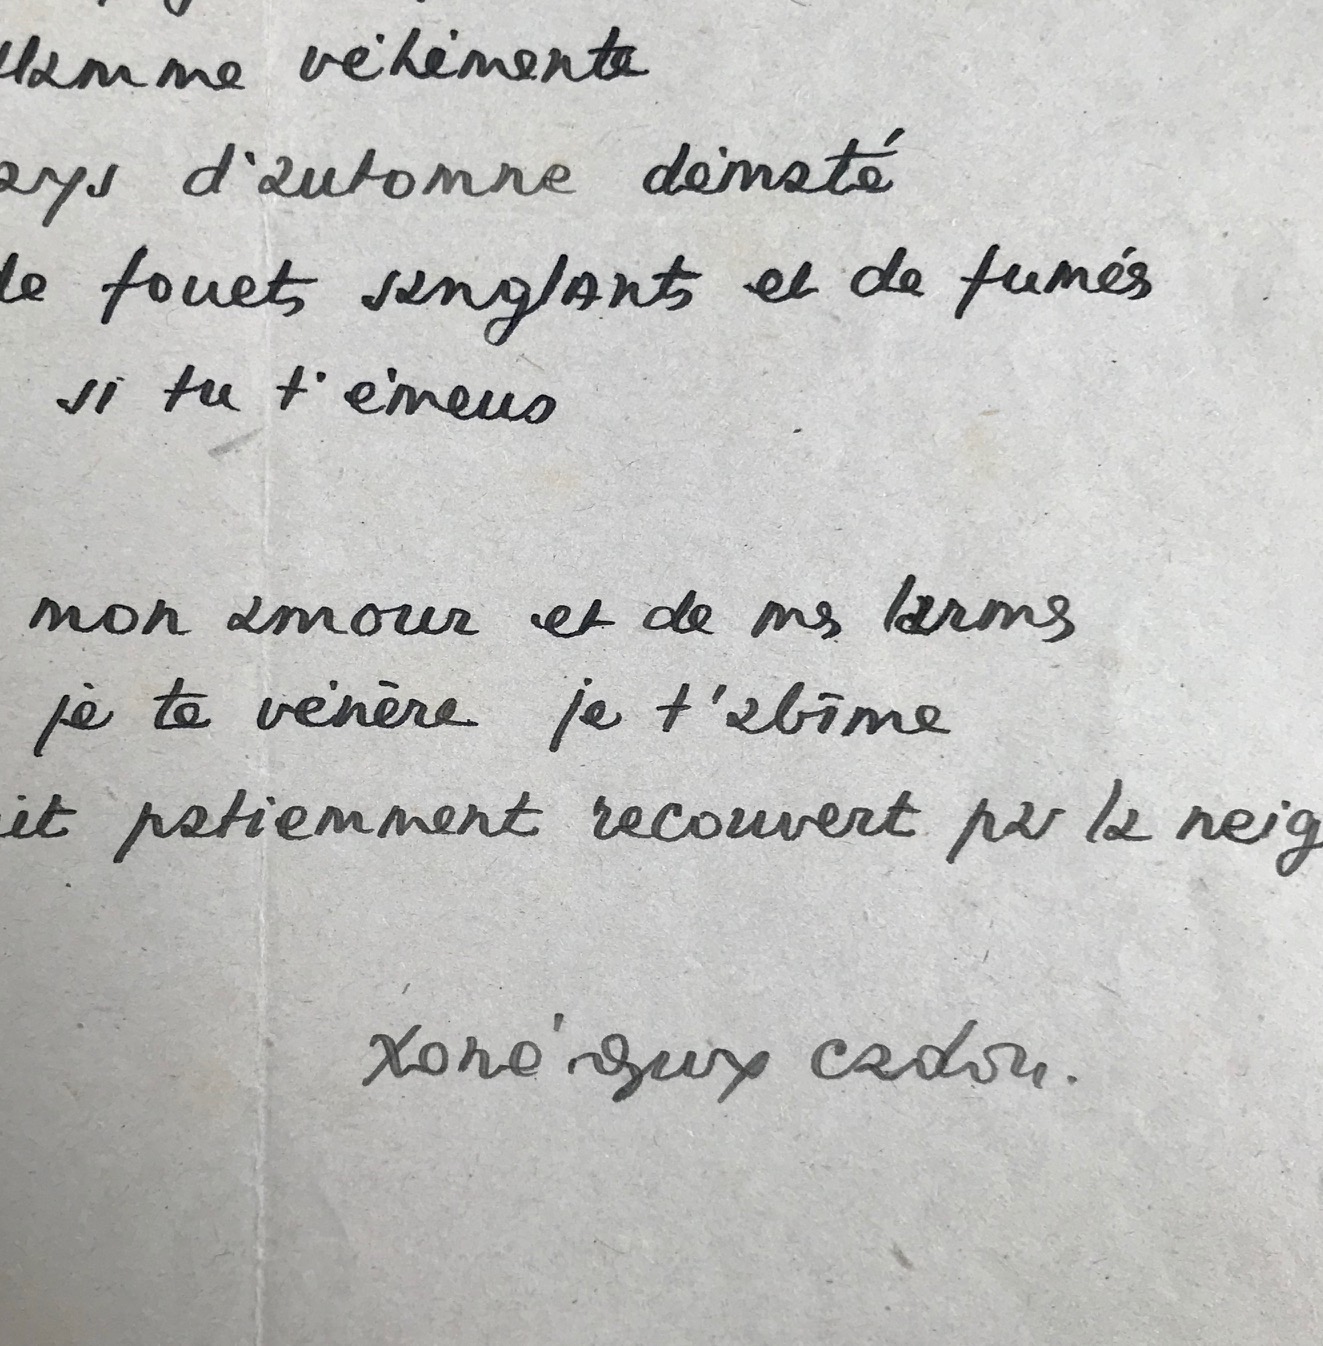 flamme véhémente
ays d'automne dématé
de fouets sanglants et de fumés
si tu t'émeus
mon amour et de mes larmes
je te vénère je t'abîme
it patiemment recouvert par la neig
René Guy Cadou.